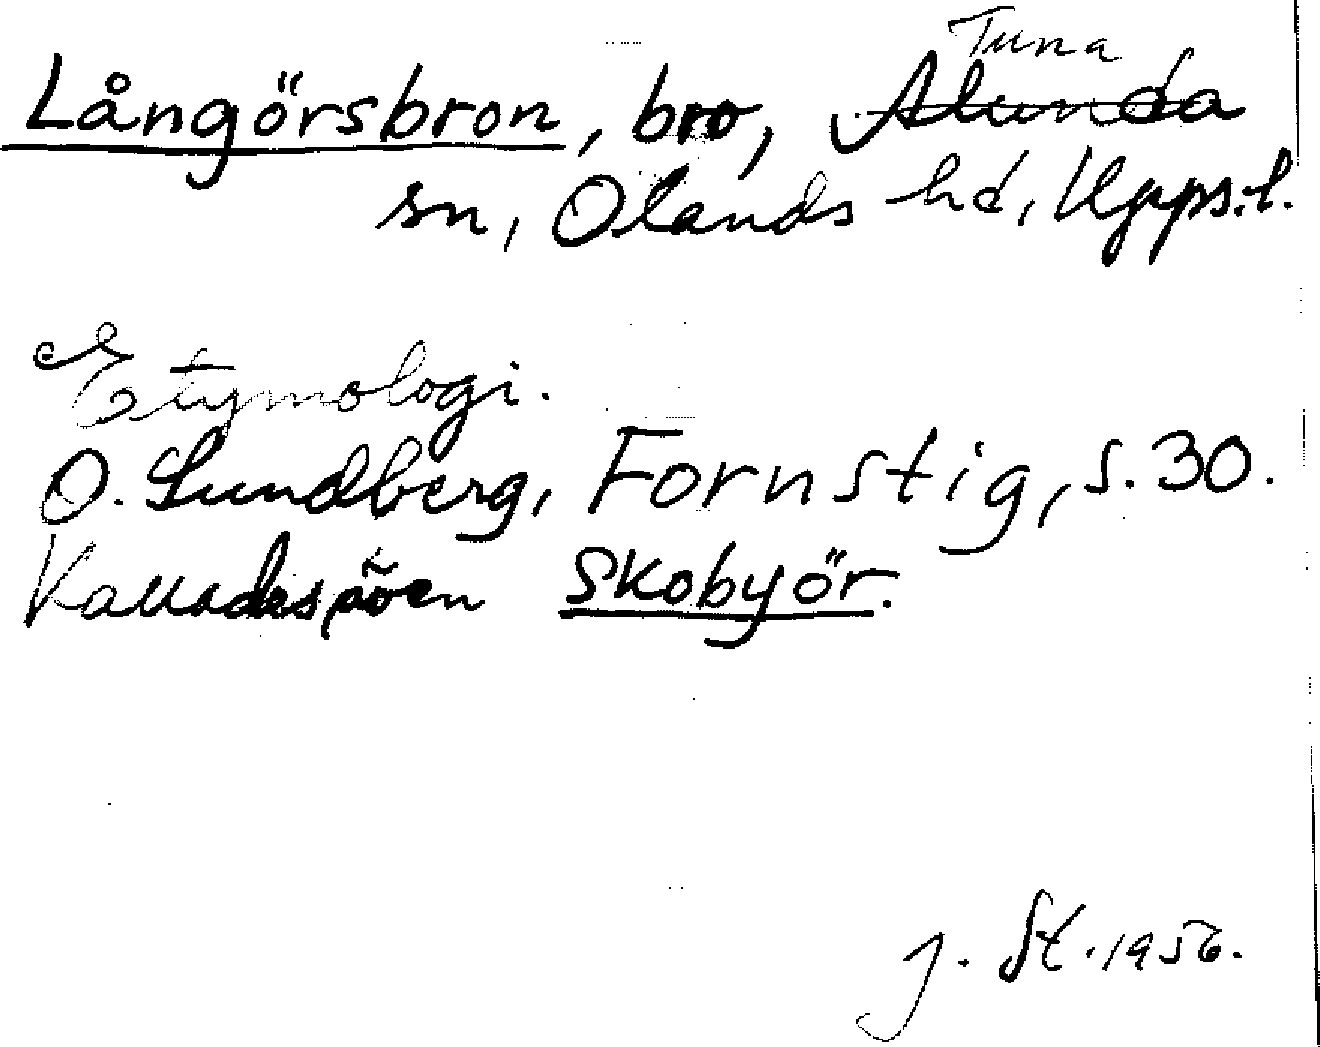 Tuna
Långörsbron, bro, Alunda
sn, Olands hd, Upps.l.
Etymologi.
O. Lundberg, Fornstig, s. 30.
Kallades även Skobyör.
J. St. 1956.